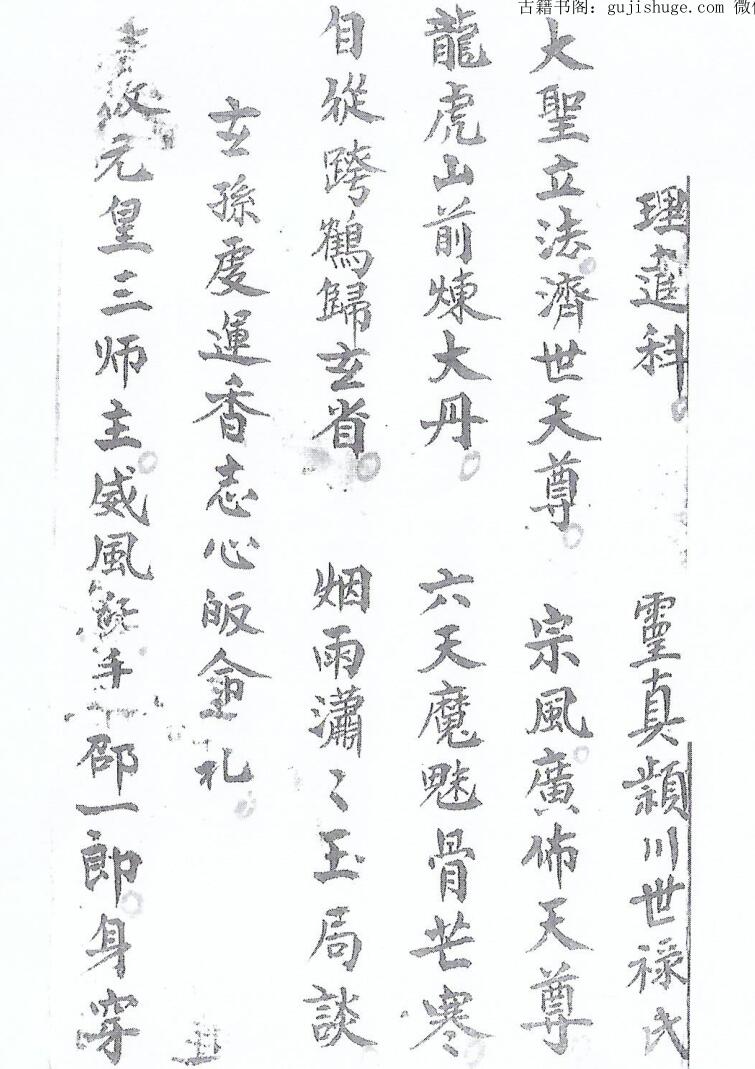 古籍书阁：gujishuge.com 微
理進科 靈真潁川世禄氏
大聖立法濟世天尊 宗風廣佈天尊
龍虎山前煉大丹 六天魔魅骨芒寒
自從跨鶴歸玄省 烟雨瀟〻玉局談
玄孫虔運香志心皈命礼
元皇三师主威風手邵一郎身穿